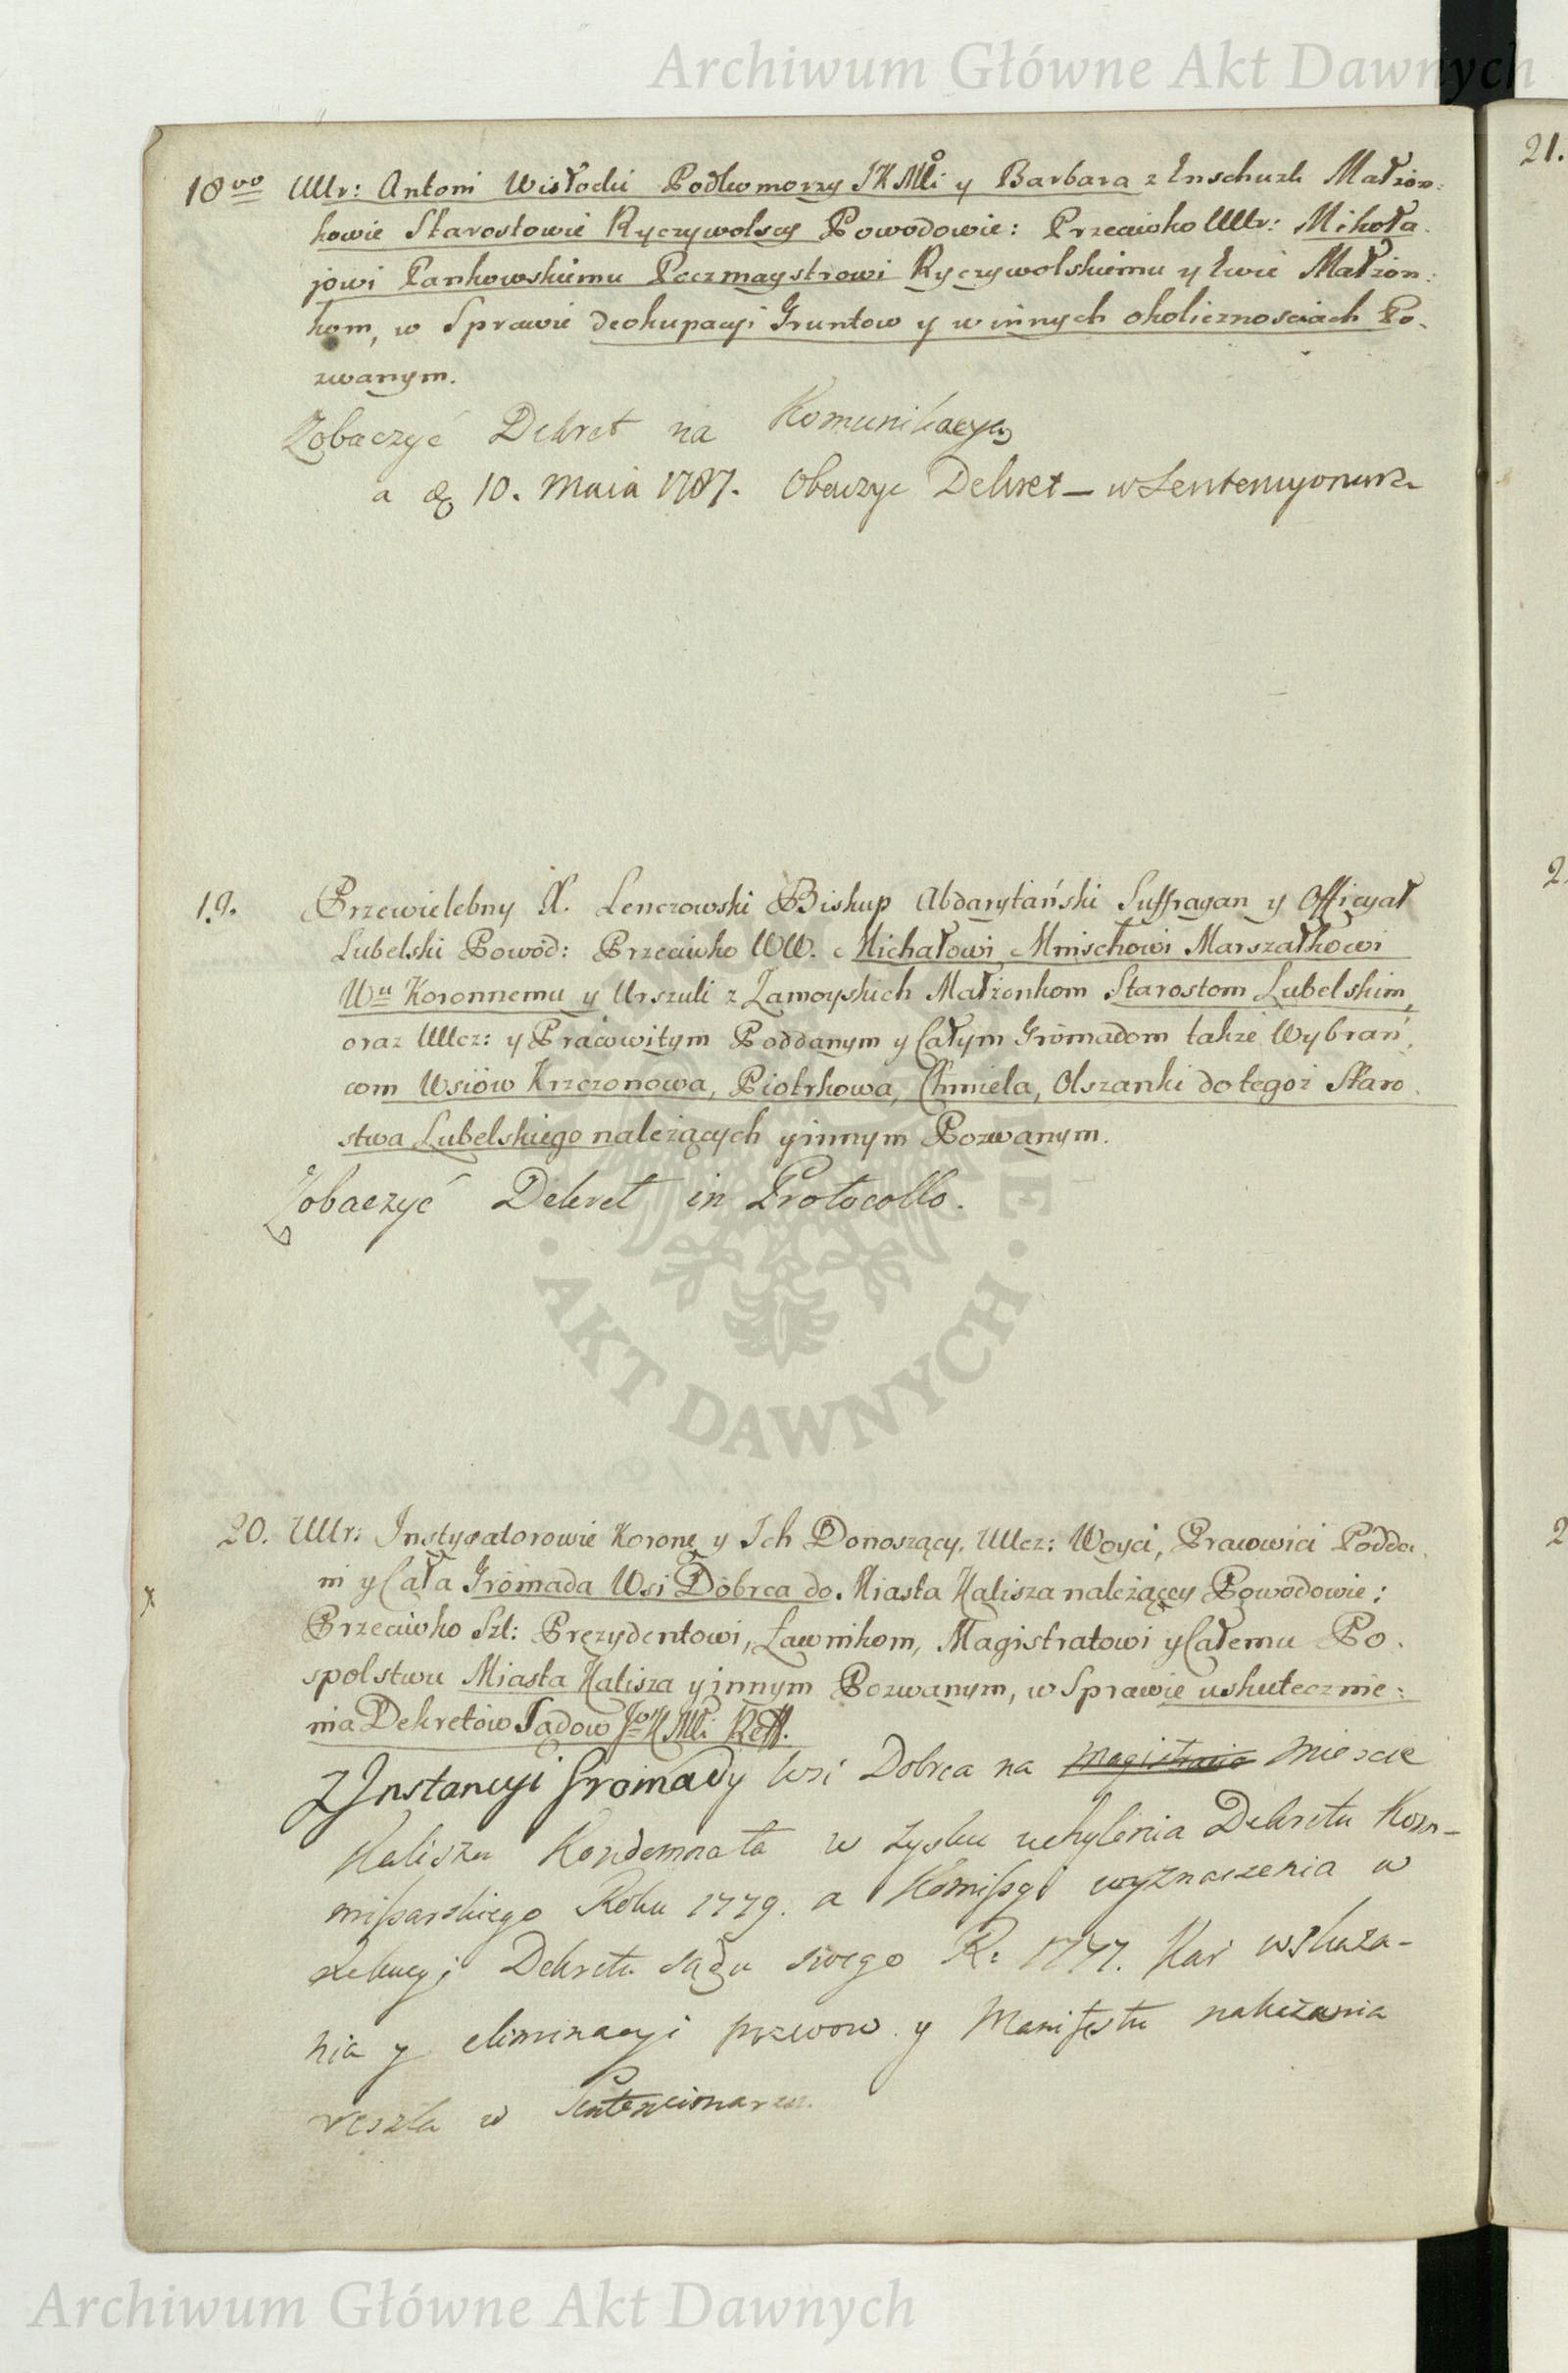 Archiwum Główne Akt Dawnych
18vo Uur: Antoni Wisłocki Podkomorzy JKMci y Barbara z Małżon:
kowie Starostowie Ryczywolscy Powodowie: Przeciwko Uur: Mikoła
jowi Pankowskiemu Poczmaystrowi Ryczywolskiemu y Ewie Małżon:
kom, w Sprawie deokupacyi Gruntow y w innych okolicznosciach Po.
zwanym.
Zobaczyć Dekret na Komunikacyą
a 10. Maia 1787. Obaczyc Dekret – w Sentencyonarz
19. Przewielebny X. Lenczowski Biskup Abdarytański Suffragan y Officyał
Lubelski Powód: Przeciwko WW. Michałowi Mnischowi Marszałkowi
Wu Koronnemu y Urszuli z Zamoyskich Małżonkom Starostom Lubelskim,
oraz Uucz: y Pracowitym Poddanym y Całym Gromadom także Wybrań.
com Wsiów Krzczonowa, Piotrkowa, Chmiela, Olszanki do tegoż Staro.
stwa Lubelskiego należących y innym Pozwanym.
Zobaczyć Dekret in Protocollo.
AKT DAWNYCH
20. Uur: Instygatorowie Korony y Ich Donoszący, Uucz: Woyci, Pracowici Podda.
ni y Cała Gromada Wsi Dobrca do Miasta Kalisza należącey Powodowie:
x
Przeciwko Szl: Prezydentowi, Ławnikom, Magistratowi y Całemu Po.
spolstwu Miasta Kalisza y innym Pozwanym, w Sprawie uskutecznie:
nia Dekretów Sądow JKMci
Z Instancyi Gromady Wsi Dobrca na Magistracie Miescie
Kaliszu Kondemnata w zysku uchylenia Dekretu Kom-
missarskiego Roku 1779. a Komissyi wyznaczenia w
exekucyi Dekretu sądu swego R: 1747. Kar wskaza-
nia y eliminacyi y Manifestu nakazania
weszła w Sentencionarzu.
21.
2
2
Archiwum Główne Akt Dawnych